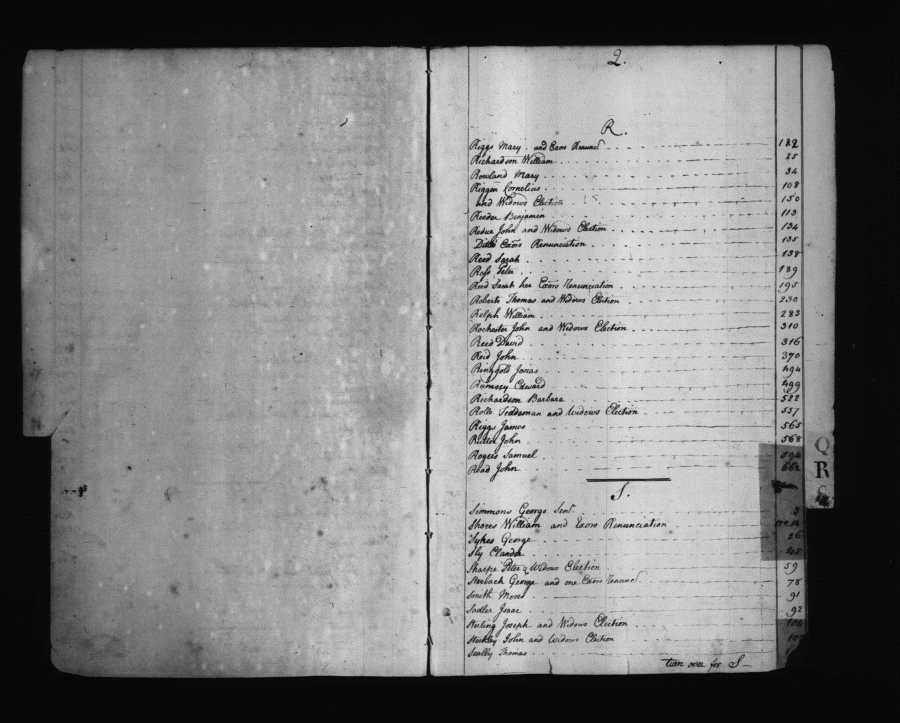 2.
R.
Riggs Mary. and Exors Renunc. 182
Richardson William 25
Rowland Mary 34
Riggen Cornelius 108
and Widows Election 150
Reeder Benjamin 113
Redue John and Widows Election 134
Ditto Exors Renunciation 135
Reed Sarah 138
Ross Peter 189
Reed Sarah her Exors Renunciation 195
Roberts Thomas and Widows Election 230
Relph William 283
Rochester John and Widows Election 310
Reed David 316
Reid John 370
Ringgold Josias 494
Rumsey Edward 499
Richardson Barbara 522
Rolle and Widows Election 557
Riggs James 565
Rutter John 568
Rogers Samuel 594
Read John 662
S.
Simmons George Senr. 3
Shores William and Exors Renunciation
Sykes George 26
Sly 45
Sharpe Peter & Widows Election 59
George and one Exors Renunc. 78
Smith Moses 91
Sadler Isaac 92
Sterling Joseph and Widows Election
Stockley John and Widows Election
Scally Thomas
turn over for S
Q
R
S